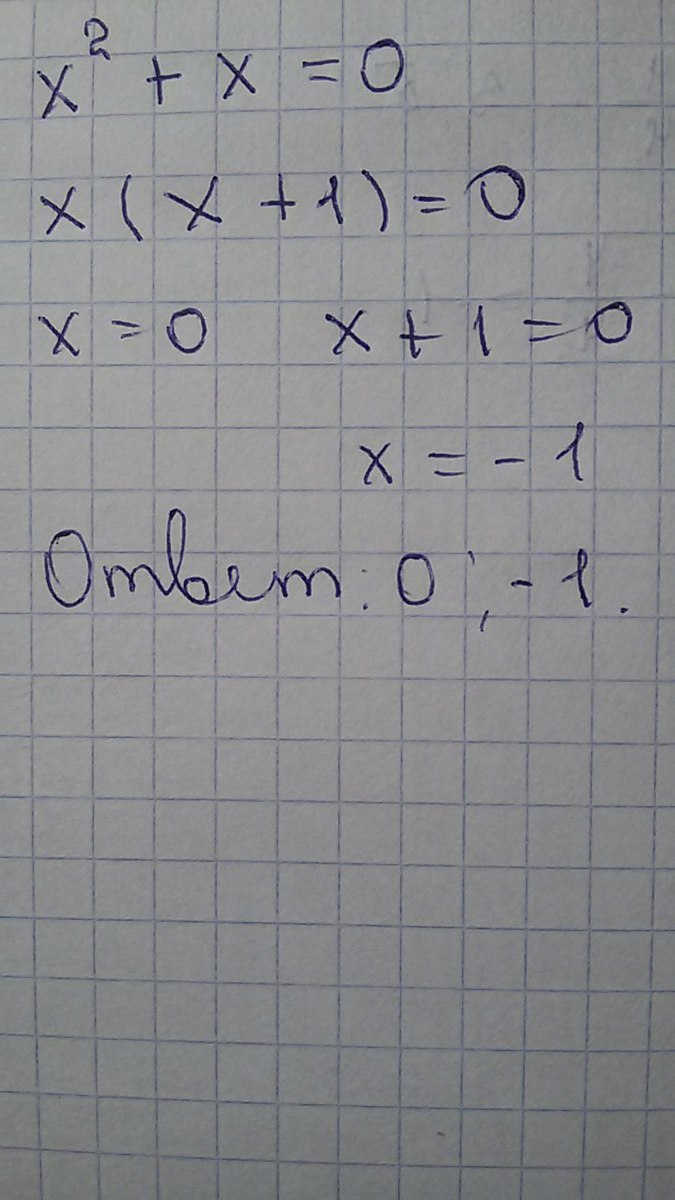 x² + x = 0
x (x + 1) = 0
x = 0 x + 1 = 0
x = - 1
Ответ: 0 ; - 1.